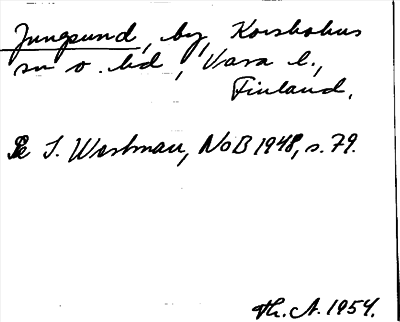 Jungsund, by, Korsholms
sn o. hd, Vasa l.,
Finland.
Se I. Westman, NoB 1948, s. 79.
Th. A. 1954.